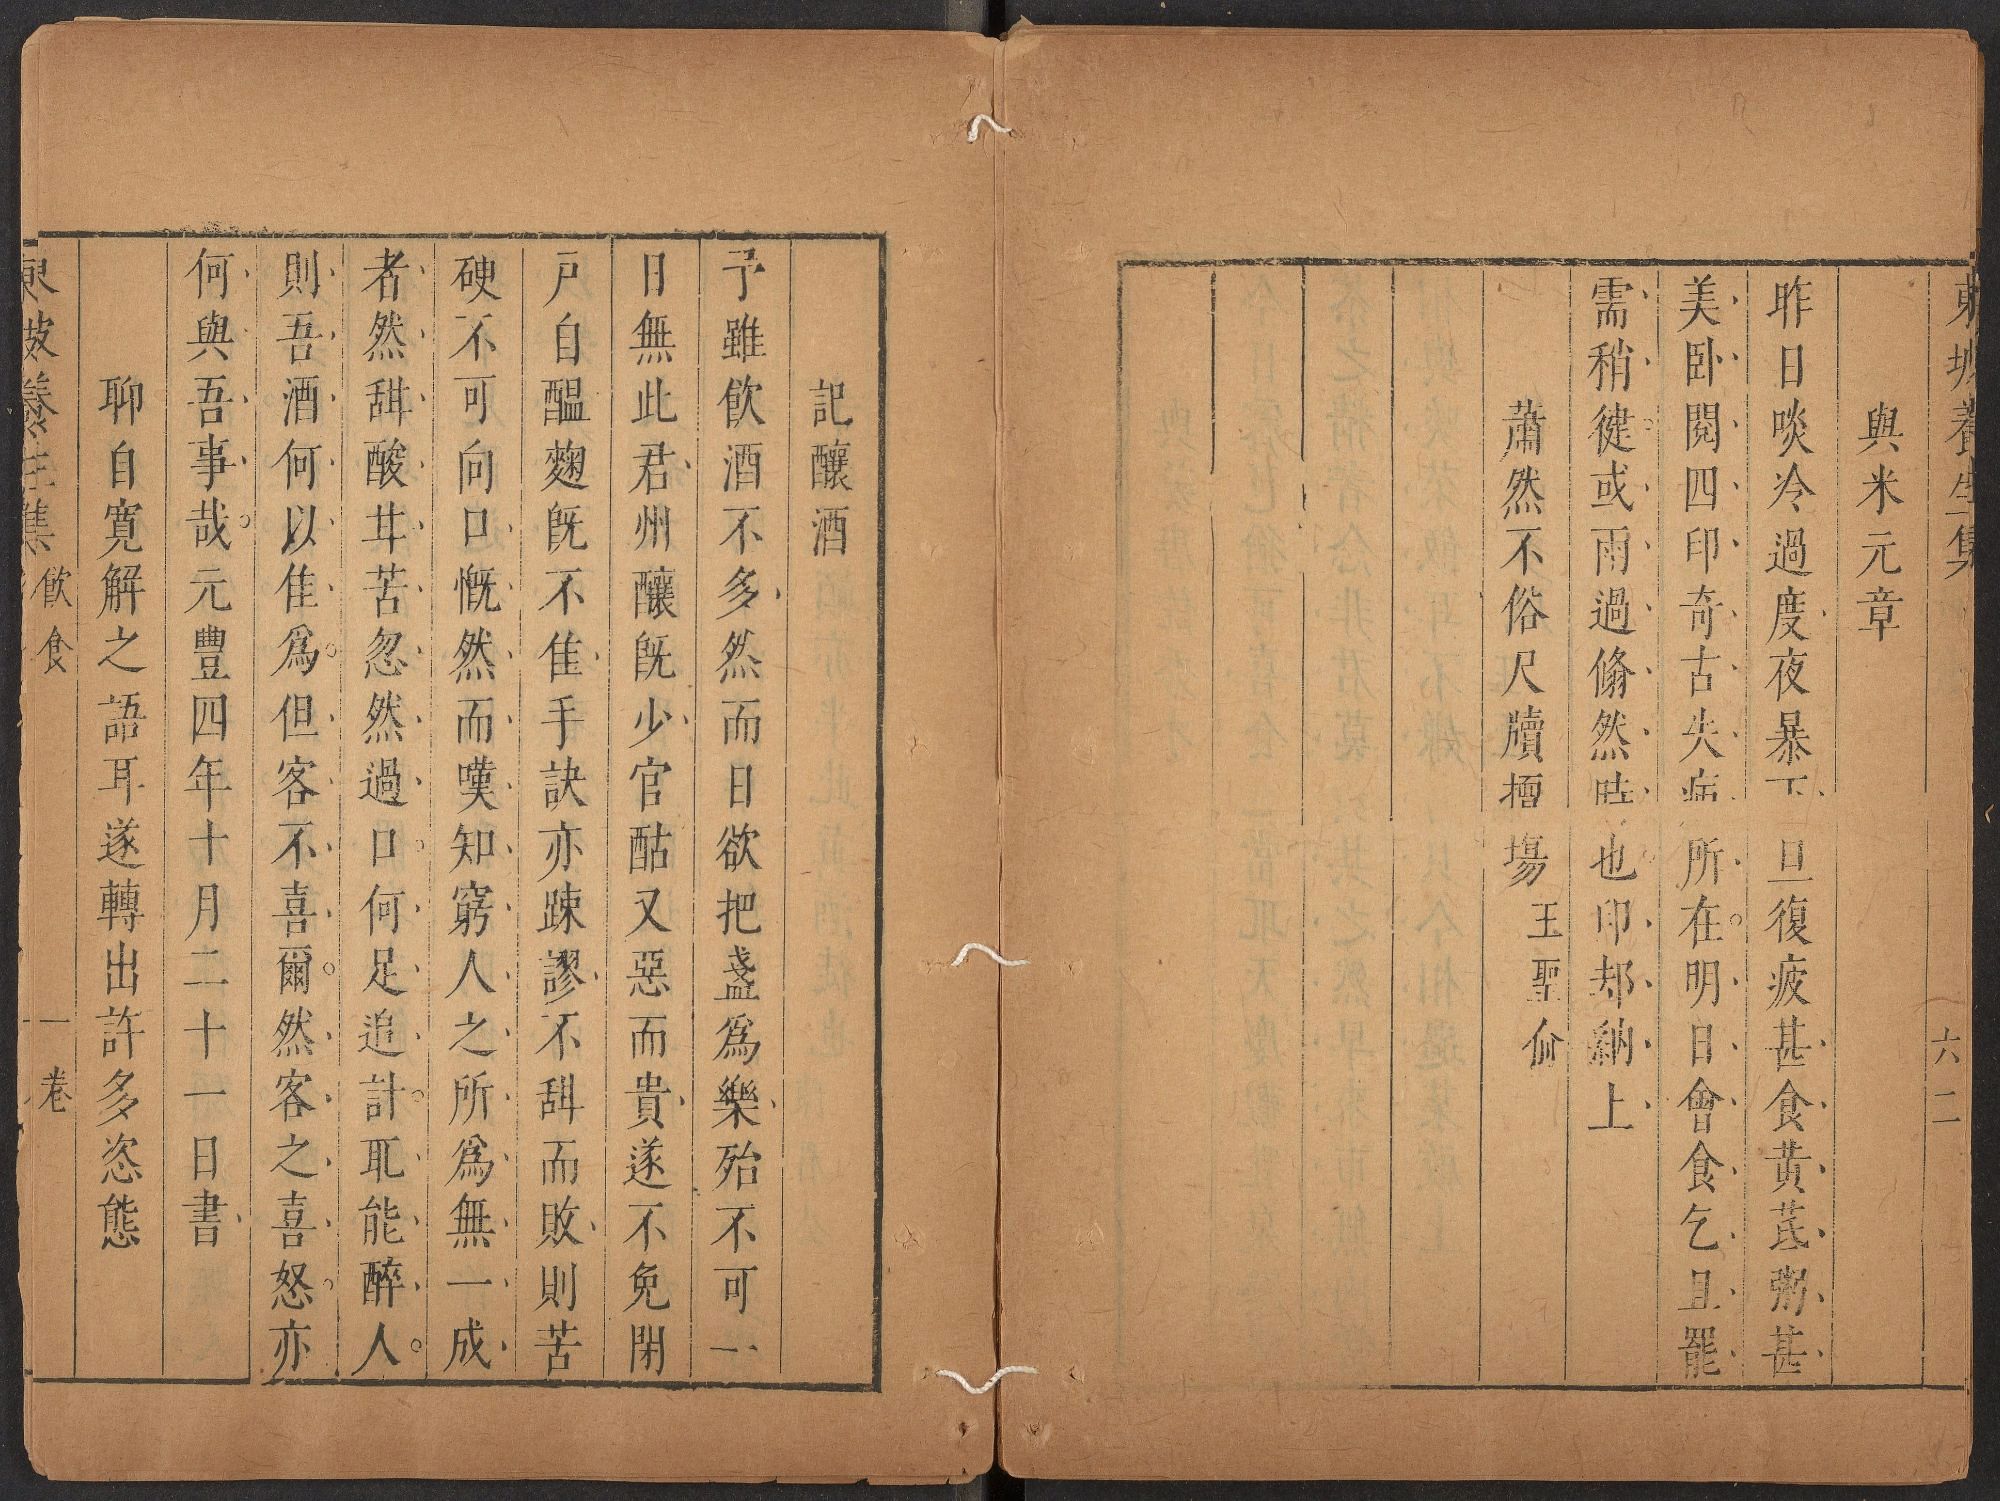 東坡養生集
六二
與米元章
昨日啖冷過度夜暴下旦復疲甚食黃茋粥甚
美卧閱四印奇古失病所在明日會食乞且罷
需稍徤或雨過翛然時也印却納上
蕭然不俗尺牘擅塲王聖俞
記釀酒
予雖飲酒不多然而日欲把盞爲樂殆不可一
日無此君州釀旣少官酤又惡而貴遂不免閉
戸自醞麴旣不佳手訣亦踈謬不甜而敗則苦
硬不可向口慨然而嘆知窮人之所爲無一成
者然甜酸甘苦忽然過口何足追計耴能醉人
則吾酒何以佳爲但客不喜爾然客之喜怒亦
何與吾事哉元豐四年十月二十一日書
聊自寬解之語耳遂轉出許多恣態
東坡養生集
飲食
一卷